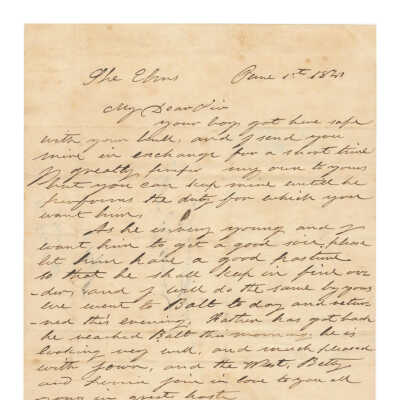 The Elms June 1st 18
My Dear Sir
your boy got here safe
with your bull, and I send you
mine in exchange for a short time
I greatly prefer my own to yours
but you can keep mine until he
performs the duty for which you
want him.
As he is very young and I
want him to get a good size, please
let him have a good pasture
so that he shall keep in fine or-
-der, and I will do the same by yours
We went to Balt to day and retur-
ned this evening, Father has got back
he reached Balt this morning, he is
looking very well, and much pleased
with Iowa, and the West, Betty
and join in love to you all
yours in great haste